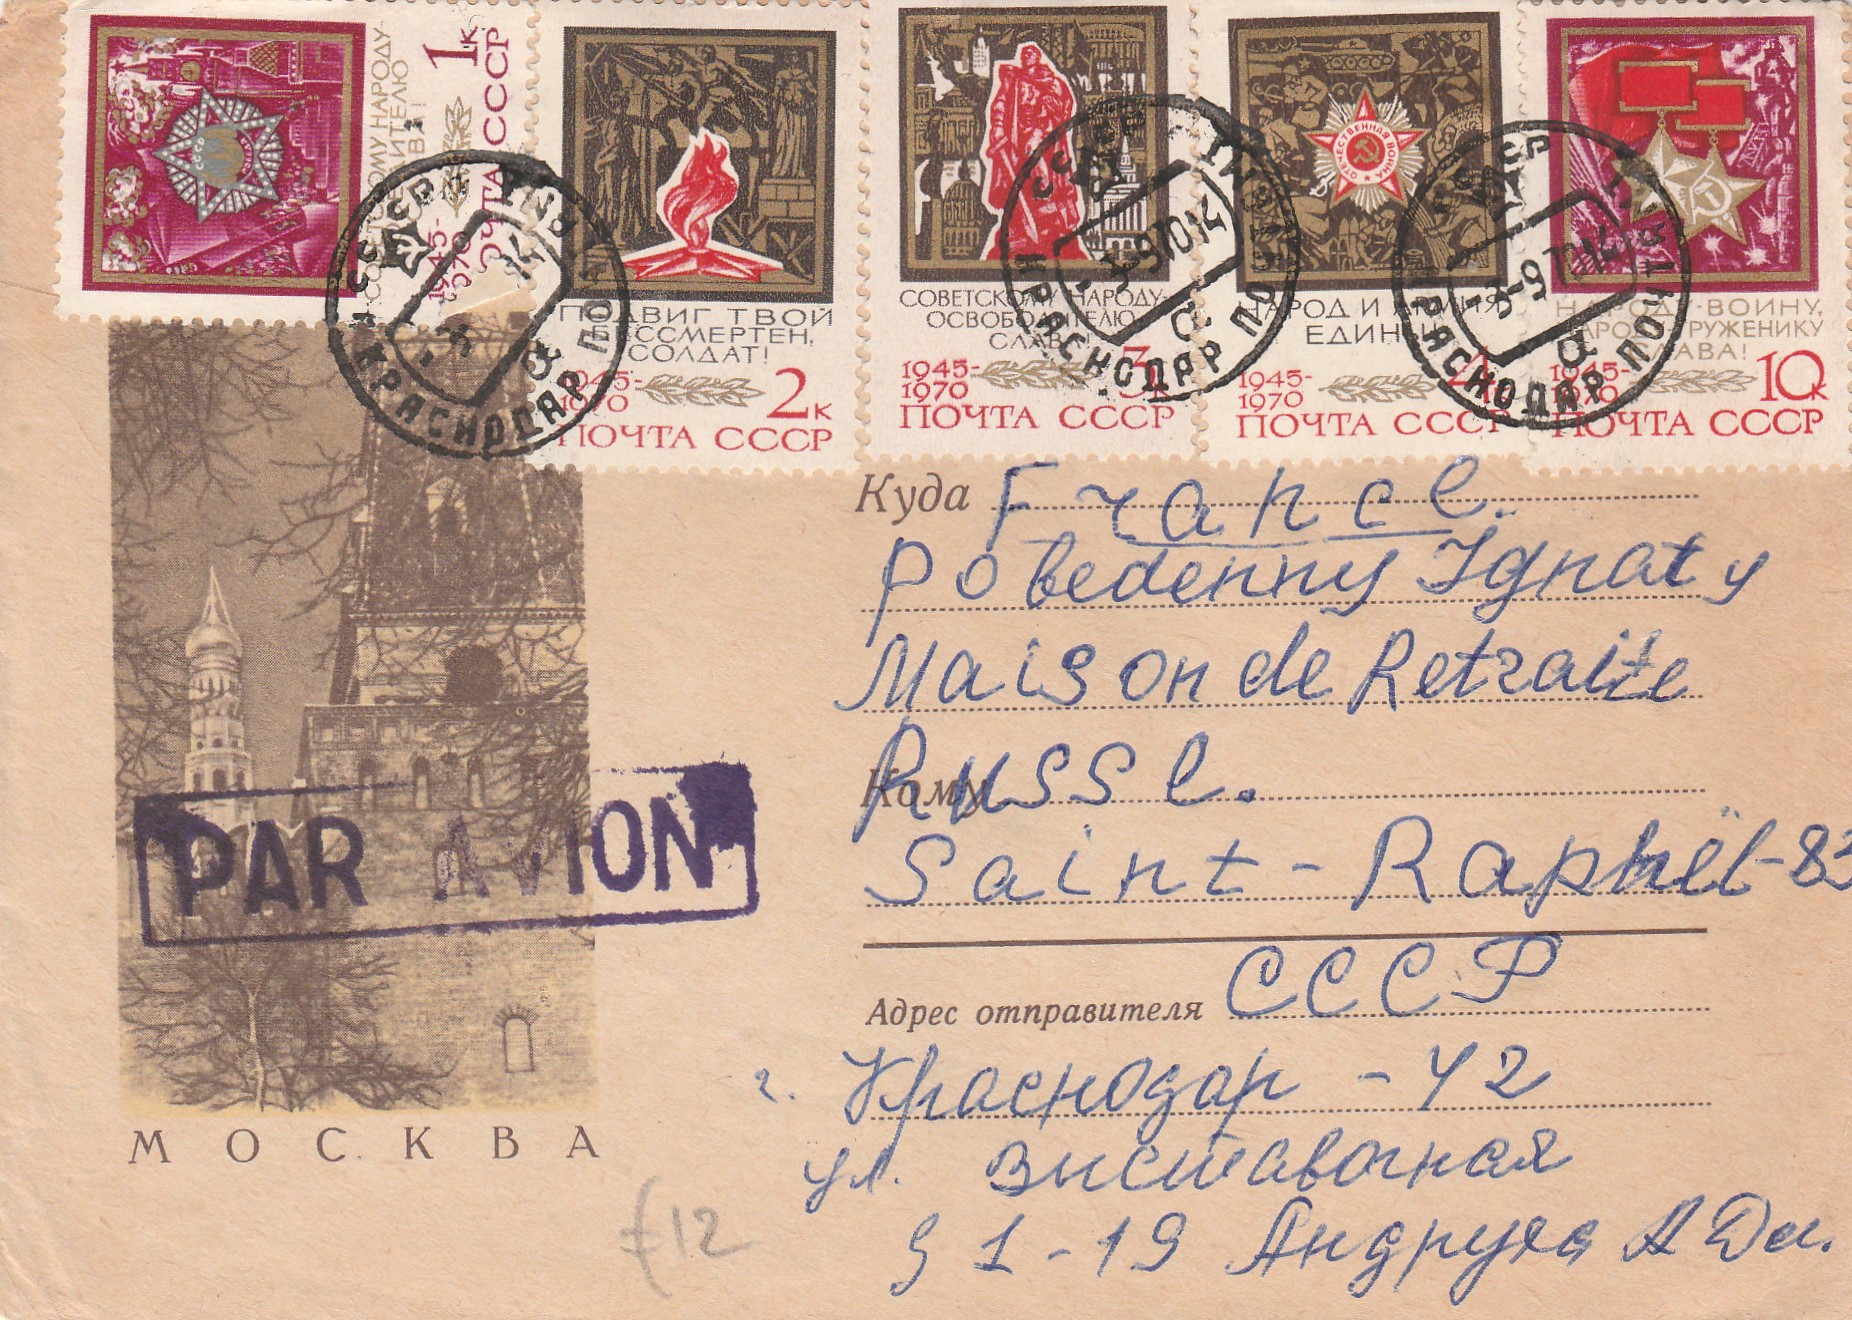 СОВЕТСКОМУ НАРОДУ-
ПОБЕДИТЕЛЮ
СЛАВА!
1945-
1970
1к
ПОЧТА СССР
ПОДВИГ ТВОЙ
БЕССМЕРТЕН,
СОЛДАТ!
1945-
1970
2к
ПОЧТА СССР
СОВЕТСКОМУ НАРОДУ-
ОСВОБОДИТЕЛЮ
СЛАВА!
1945-
1970
3к
ПОЧТА СССР
ОТЕЧЕСТВЕННАЯ ВОЙНА
НАРОД И АРМИЯ
ЕДИНЫ
1945-
1970
4к
ПОЧТА СССР
НАРОДУ-ВОИНУ,
НАРОДУ-ТРУЖЕНИКУ
СЛАВА!
1945-
1970
10к
ПОЧТА СССР
СССР
КРАСНОДАР ПОЧТАМТ
СССР
-3-97014
КРАСНОДАР ПОЧТАМТ
СССР
КРАСНОДАР ПОЧТАМТ
Куда France.
Pobedenny Ignaty
Maison de Retraite
Кому Russe.
Saint-Raphël-83
PAR AVION
Адрес отправителя СССР
г. Краснодар -42
ул. Выставочная
91-19 Андруха А Дм.
МОСКВА
£12